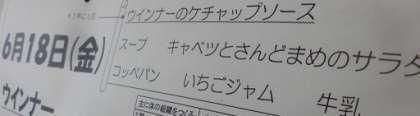 ウインナーのケチャップソース
6月18日(金)
スープ キャベツとさんどまめのサラダ
コッペパン いちごジャム 牛乳
ウインナー